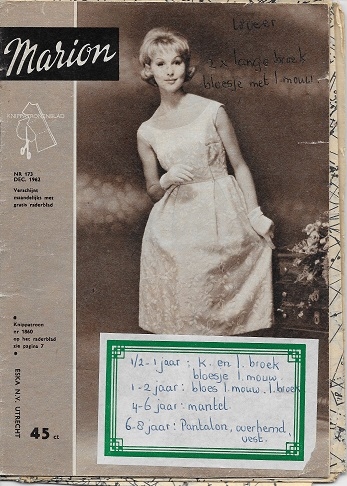 Marion
KNIPPATRONENBLAD
NR 173
DEC. 1962
Verschijnt
maandelijks met
gratis raderblad
2x lange broek
bloesje met l. mouw.
Knippatroon
nr 1860
op het raderblad
zie pagina 7
ESKA N.V. UTRECHT
45 ct
1/2-1 jaar: k. en l. broek
bloesje l. mouw
1-2 jaar: bloes l. mouw. l. broek
4-6 jaar: mantel
6-8 jaar: Pantalon, overhemd,
vest.